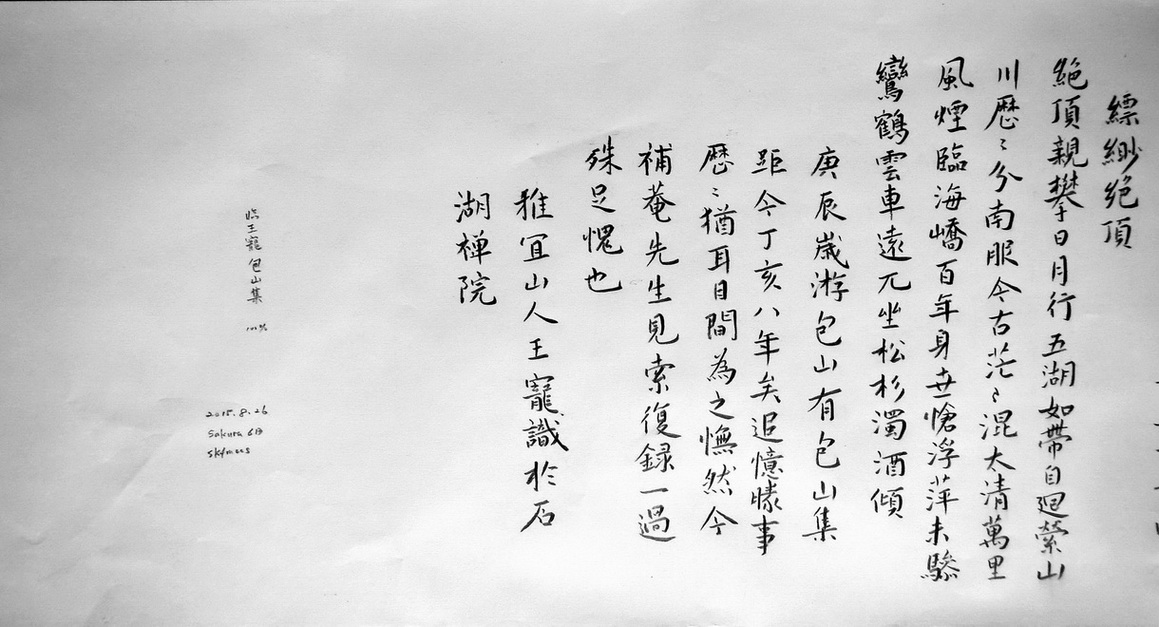 縹緲絕頂
絶頂親攀日月行五湖如帶自迴縈山
川歷〻分南服今古茫〻混太清萬里
風煙臨海嶠百年身世愴浮萍未驂
鸞鶴雲車遠兀坐松杉濁酒傾
庚辰歲游包山有包山集
距今丁亥八年矣追憶曩事
歷〻猶耳目間為之憮然今
補菴先生見索復録一過
殊足愧也
雅宜山人王寵識於石
湖禅院
临王寵包山集
2015.8.26
Sakura 6B